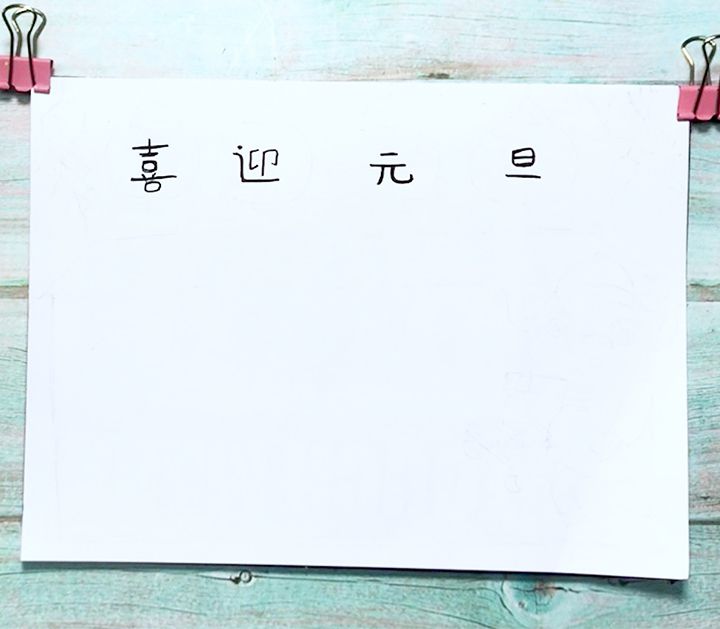 喜迎元旦